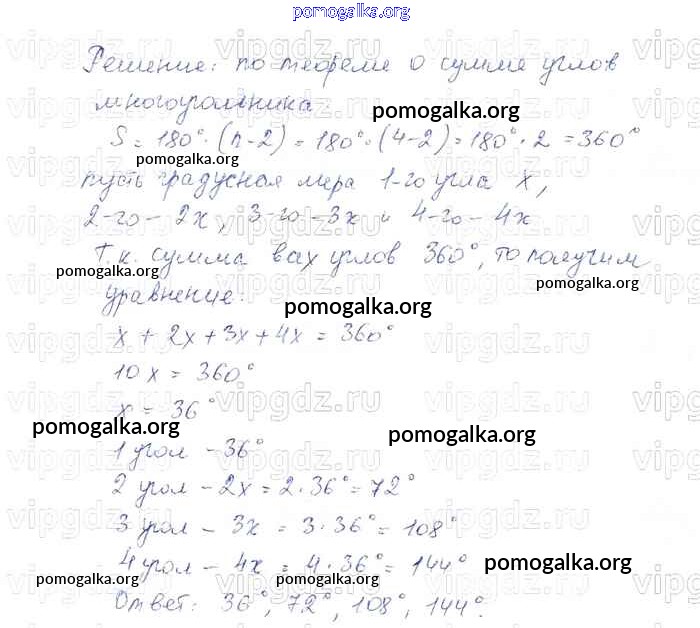 pomogalka.org
Решение: по теореме о сумме углов
многоугольника:
pomogalka.org
S = 180° · (n - 2) = 180° · (4 - 2) = 180° · 2 = 360°
pomogalka.org
пусть градусная мера 1-го угла x,
2-го - 2x, 3-го - 3x и 4-го - 4x
Т.к. сумма всех углов 360°, то получим
pomogalka.org
pomogalka.org
уравнение:
pomogalka.org
x + 2x + 3x + 4x = 360°
vipgdz.ru
10x = 360°
x = 36°
pomogalka.org
pomogalka.org
1 угол - 36°
2 угол - 2x = 2 · 36° = 72°
3 угол - 3x = 3 · 36° = 108°
4 угол - 4x = 4 · 36° = 144°
pomogalka.org
pomogalka.org
pomogalka.org
Ответ: 36°, 72°, 108°, 144°.